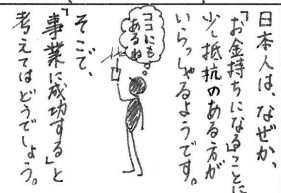 日本人は、なぜか、
「お金持ちになる」ことに
少し抵抗のある方が
いらっしゃるようです。
ココにも
あるね
そこで、
「事業に成功する」と
考えてはどうでしょう。